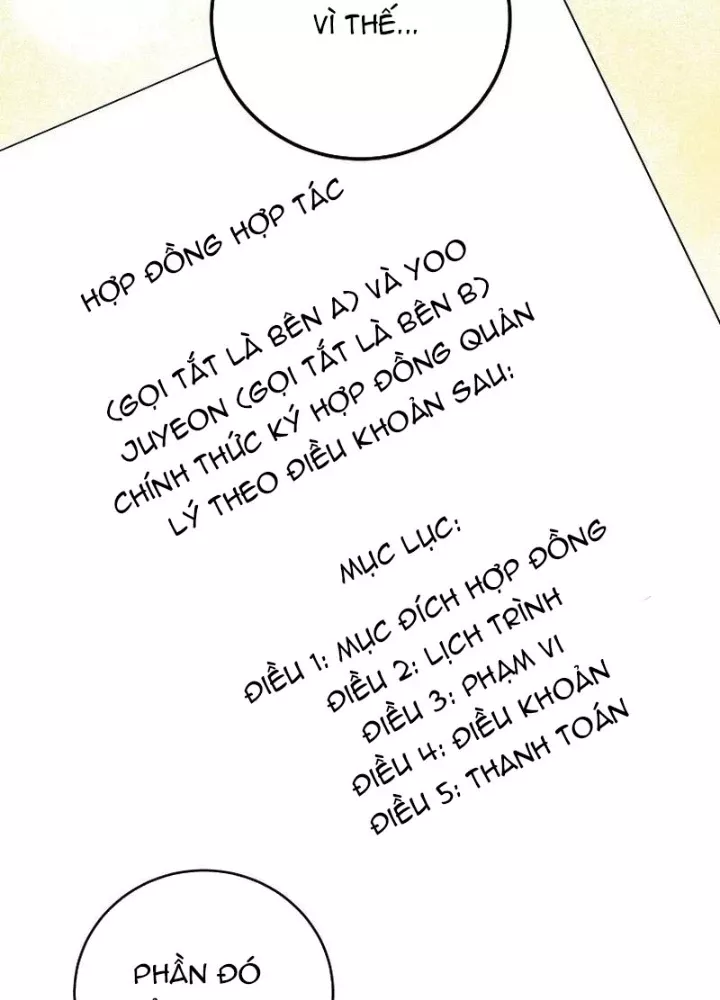 VÌ THẾ...
HỢP ĐỒNG HỢP TÁC
(GỌI TẮT LÀ BÊN A) VÀ YOO
JUYEON (GỌI TẮT LÀ BÊN B)
CHÍNH THỨC KÝ HỢP ĐỒNG QUẢN
LÝ THEO ĐIỀU KHOẢN SAU:
MỤC LỤC:
ĐIỀU 1: MỤC ĐÍCH HỢP ĐỒNG
ĐIỀU 2: LỊCH TRÌNH
ĐIỀU 3: PHẠM VI
ĐIỀU 4: ĐIỀU KHOẢN
ĐIỀU 5: THANH TOÁN
PHẦN ĐÓ